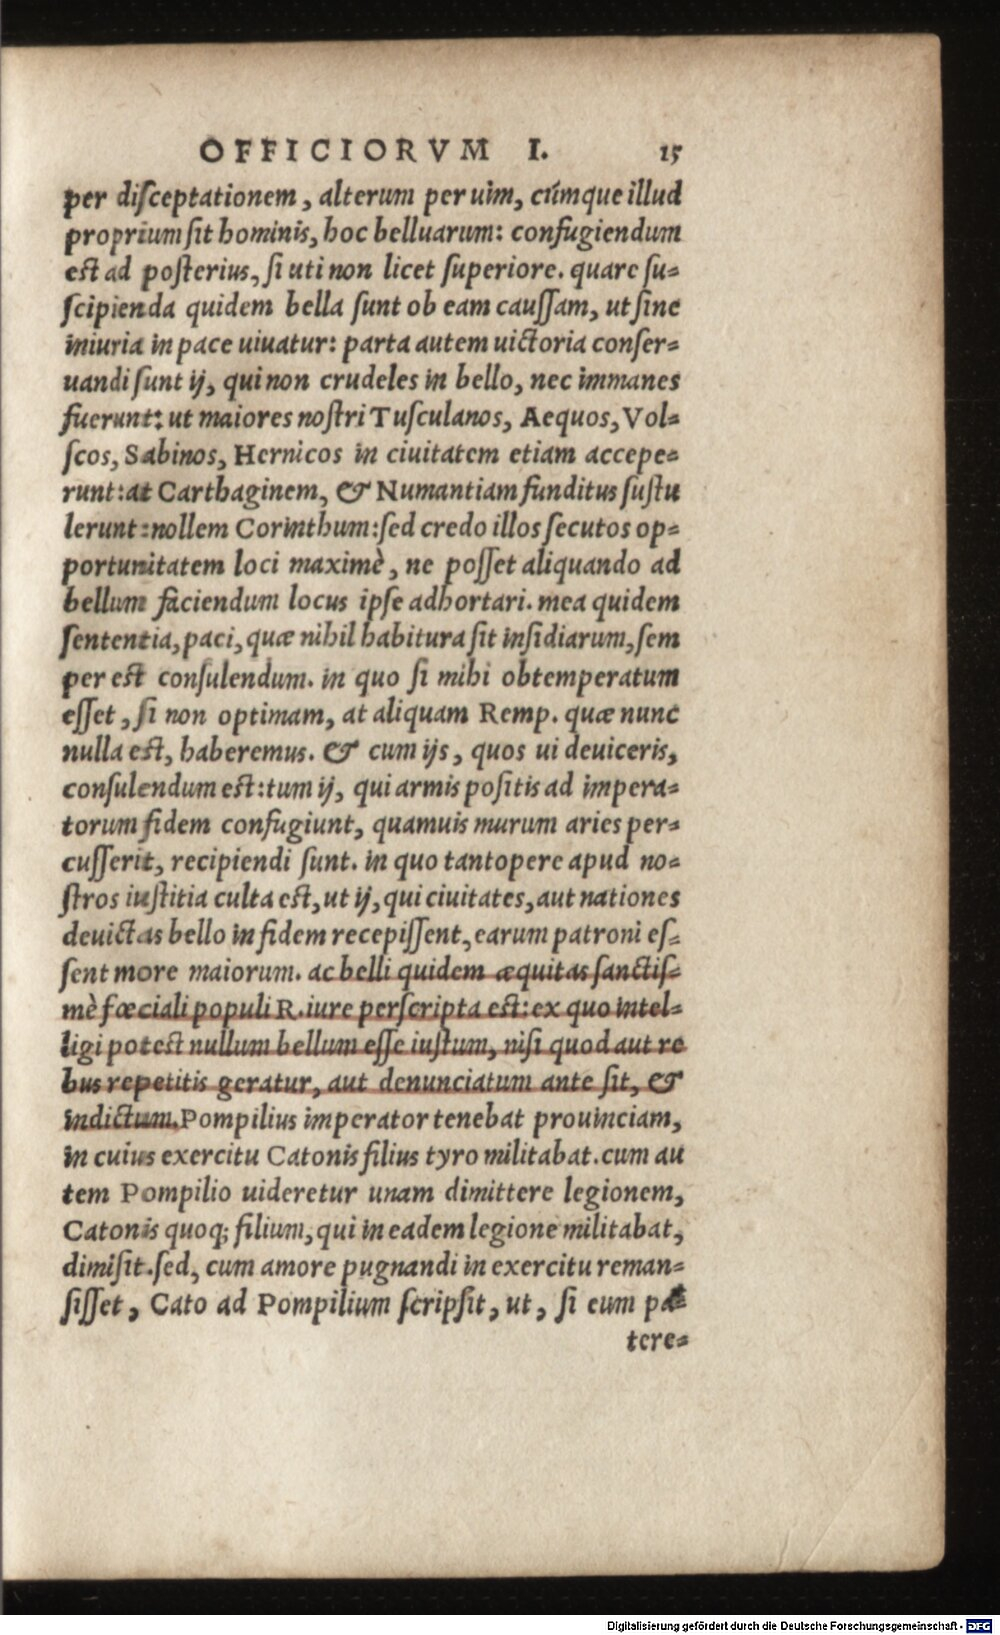 OFFICIORVM I. 15
per disceptationem, alterum per uim, cúmque illud
proprium sit hominis, hoc belluarum: confugiendum
est ad posterius, si uti non licet superiore. quare su-
scipienda quidem bella sunt ob eam caussam, ut sine
iniuria in pace uiuatur: parta autem uictoria conser-
uandi sunt ij, qui non crudeles in bello, nec immanes
fuerunt: ut maiores nostri Tusculanos, Aequos, Vol-
scos, Sabinos, Hernicos in ciuitatem etiam accepe-
runt: at Carthaginem, & Numantiam funditus sustu
lerunt: nollem Corinthum: sed credo illos secutos op-
portunitatem loci maximè, ne posset aliquando ad
bellum faciendum locus ipse adhortari. mea quidem
sententia, paci, quæ nihil habitura sit insidiarum, sem
per est consulendum. in quo si mihi obtemperatum
esset, si non optimam, at aliquam Remp. quæ nunc
nulla est, haberemus. & cum ijs, quos ui deuiceris,
consulendum est: tum ij, qui armis positis ad impera-
torum fidem confugiunt, quamuis murum aries per-
cusserit, recipiendi sunt. in quo tantopere apud no-
stros iustitia culta est, ut ij, qui ciuitates, aut nationes
deuictas bello in fidem recepissent, earum patroni es-
sent more maiorum. ac belli quidem æquitas sanctis-
mè fœciali populi R. iure perscripta est: ex quo intel-
ligi potest nullum bellum esse iustum, nisi quod aut re
bus repetitis geratur, aut denunciatum ante sit, &
indictum. Pompilius imperator tenebat prouinciam,
in cuius exercitu Catonis filius tyro militabat. cum au
tem Pompilio uideretur unam dimittere legionem,
Catonis quoq; filium, qui in eadem legione militabat,
dimisit. sed, cum amore pugnandi in exercitu reman-
sisset, Cato ad Pompilium scripsit, ut, si eum pa-
tere-
Digitalisierung gefördert durch die Deutsche Forschungsgemeinschaft - DFG